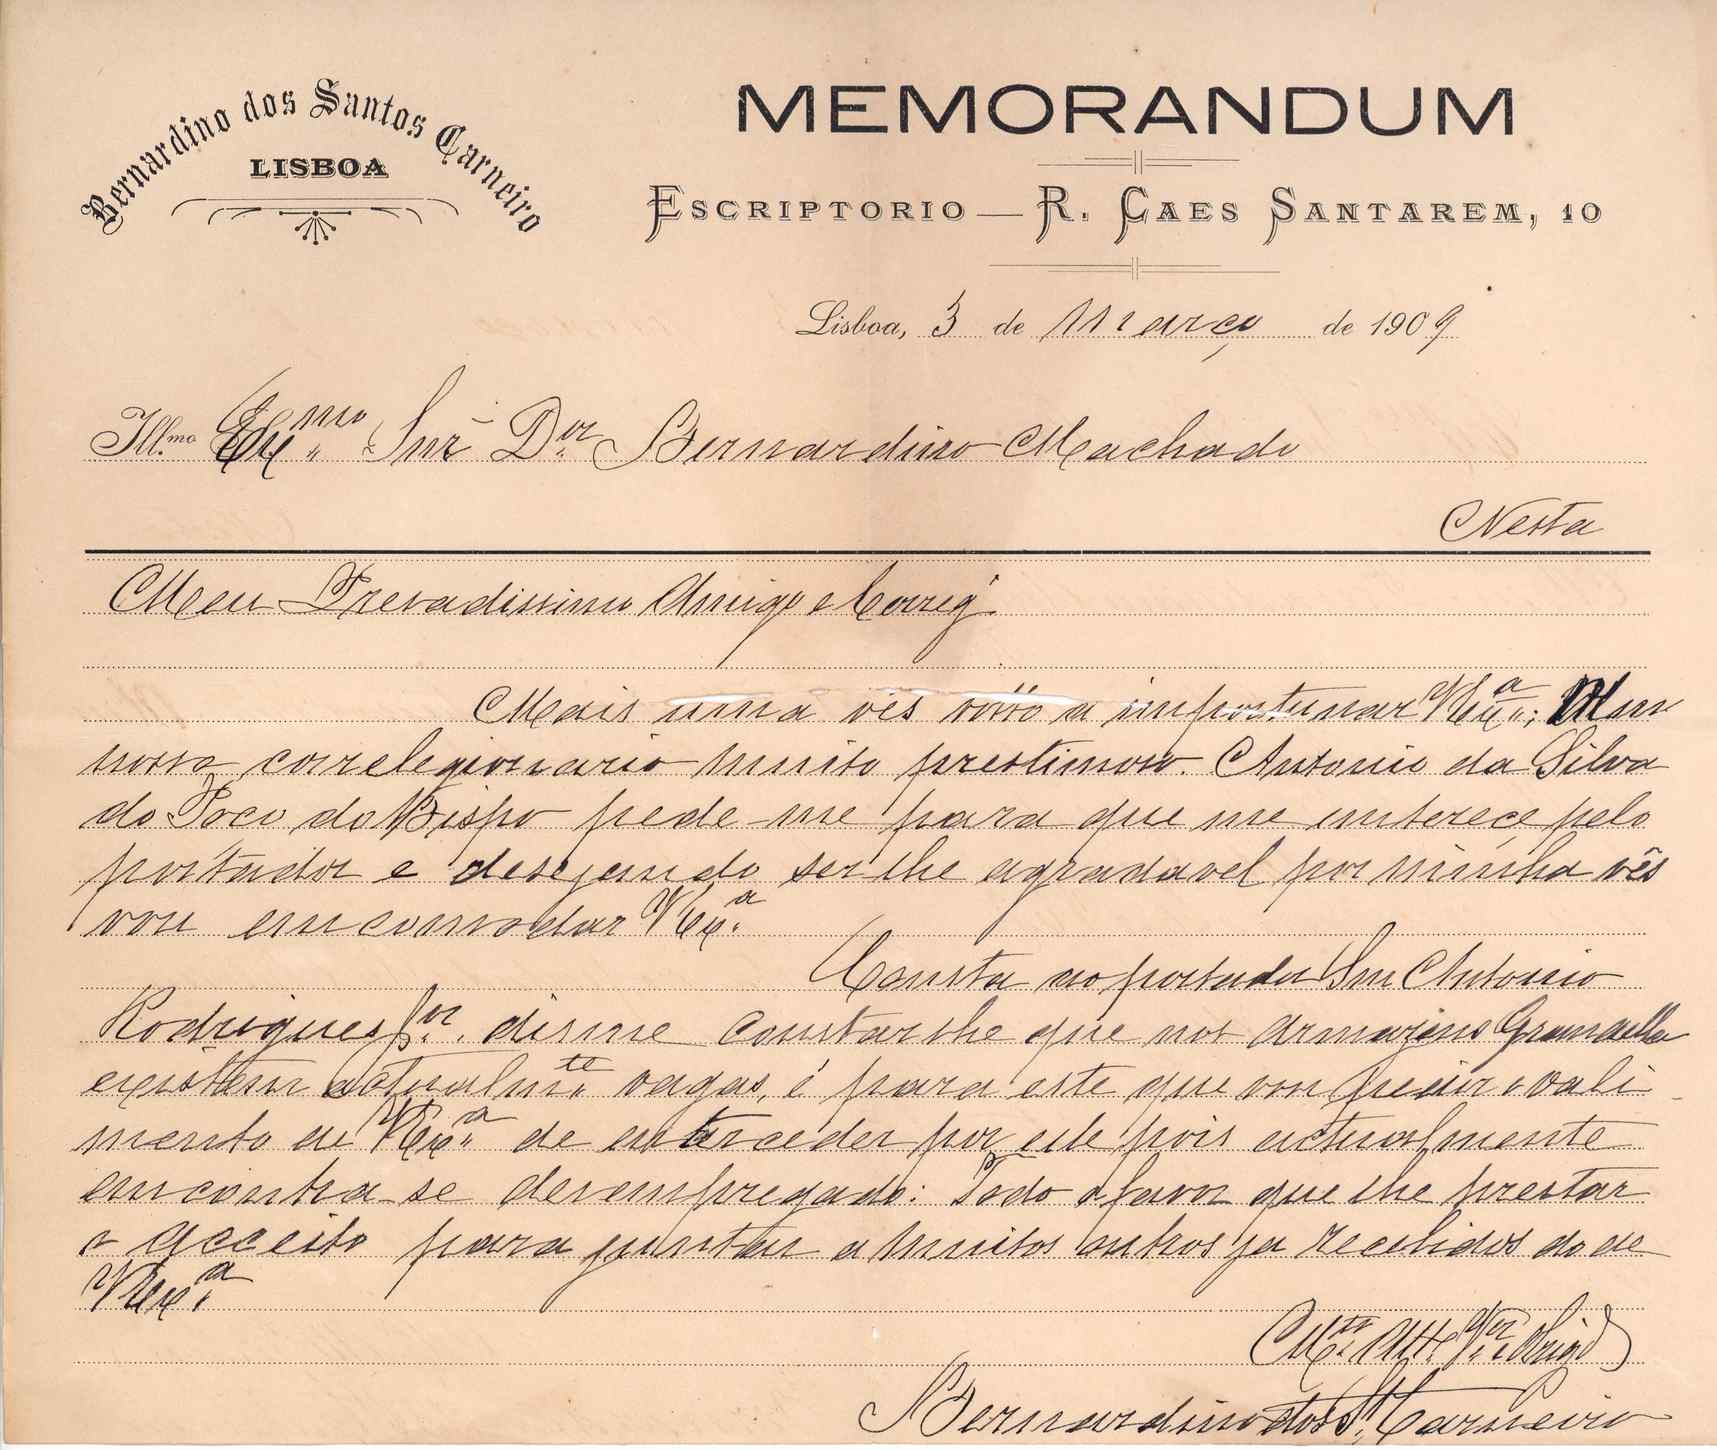 Bernardino dos Santos Carneiro
LISBOA
MEMORANDUM
ESCRIPTORIO — R. CAES SANTAREM, 10
Lisboa, 3 de Março de 1909
Ill.mo Exmo Snr Dor Bernardino Machado
Nesta
Meu Presadissimo Amigo e Correlg.
Mais uma vês vou a importunar VExa.; Um
nosso correlegionario muito prestimoso. Antonio da Silva
do Poco do Bispo pede-me para que me enterece pelo
portador e desejando ser lhe agradavel por minha vês
vou encomodar VExa.
Consta ao portador Snr Antonio
Rodrigues Jor. disme constar lhe que nos armazens Grandella
existem actualmte. vagas, é para este que vou pedir o vali
mento de VExa. de enterceder por ele pois actualmente
encontra-se desempregado: Todo o favor que lhe prestar
o acceito para juntar a muitos outros ja recebidos do de
VExa.
Mto. Att. Vor. Obrigdo
Bernardino dos Stos Carneiro